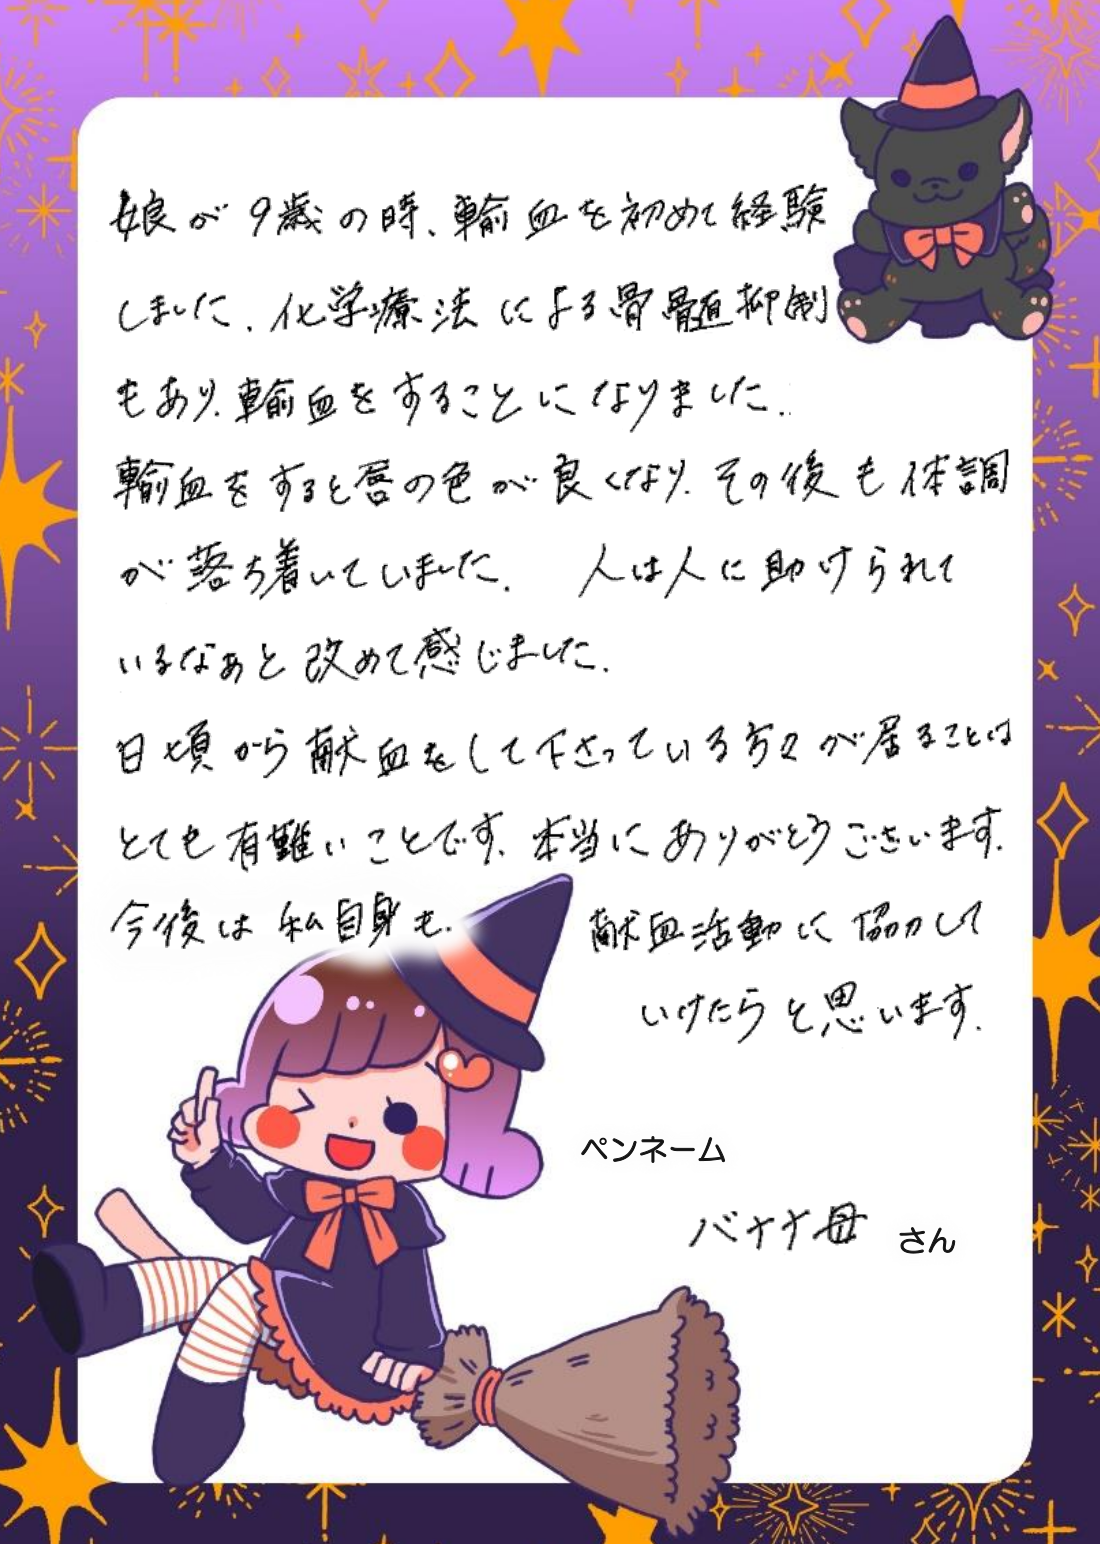 娘が9歳の時、輸血を初めて経験
しました。化学療法による骨髄抑制
もあり、輸血をすることになりました。
輸血をすると唇の色が良くなり、その後も体調
が落ち着いていました。 人は人に助けられて
いるなぁと改めて感じました。
日頃から献血をして下さっている方々が居ることは
とても有難いことです。本当にありがとうございます。
今後は私自身も、 献血活動に協力して
いけたらと思います。
ペンネーム
バナナ母 さん